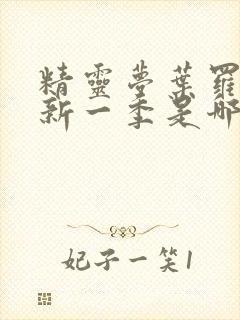 精靈夢葉羅
新一季是哪
妃子一笑1